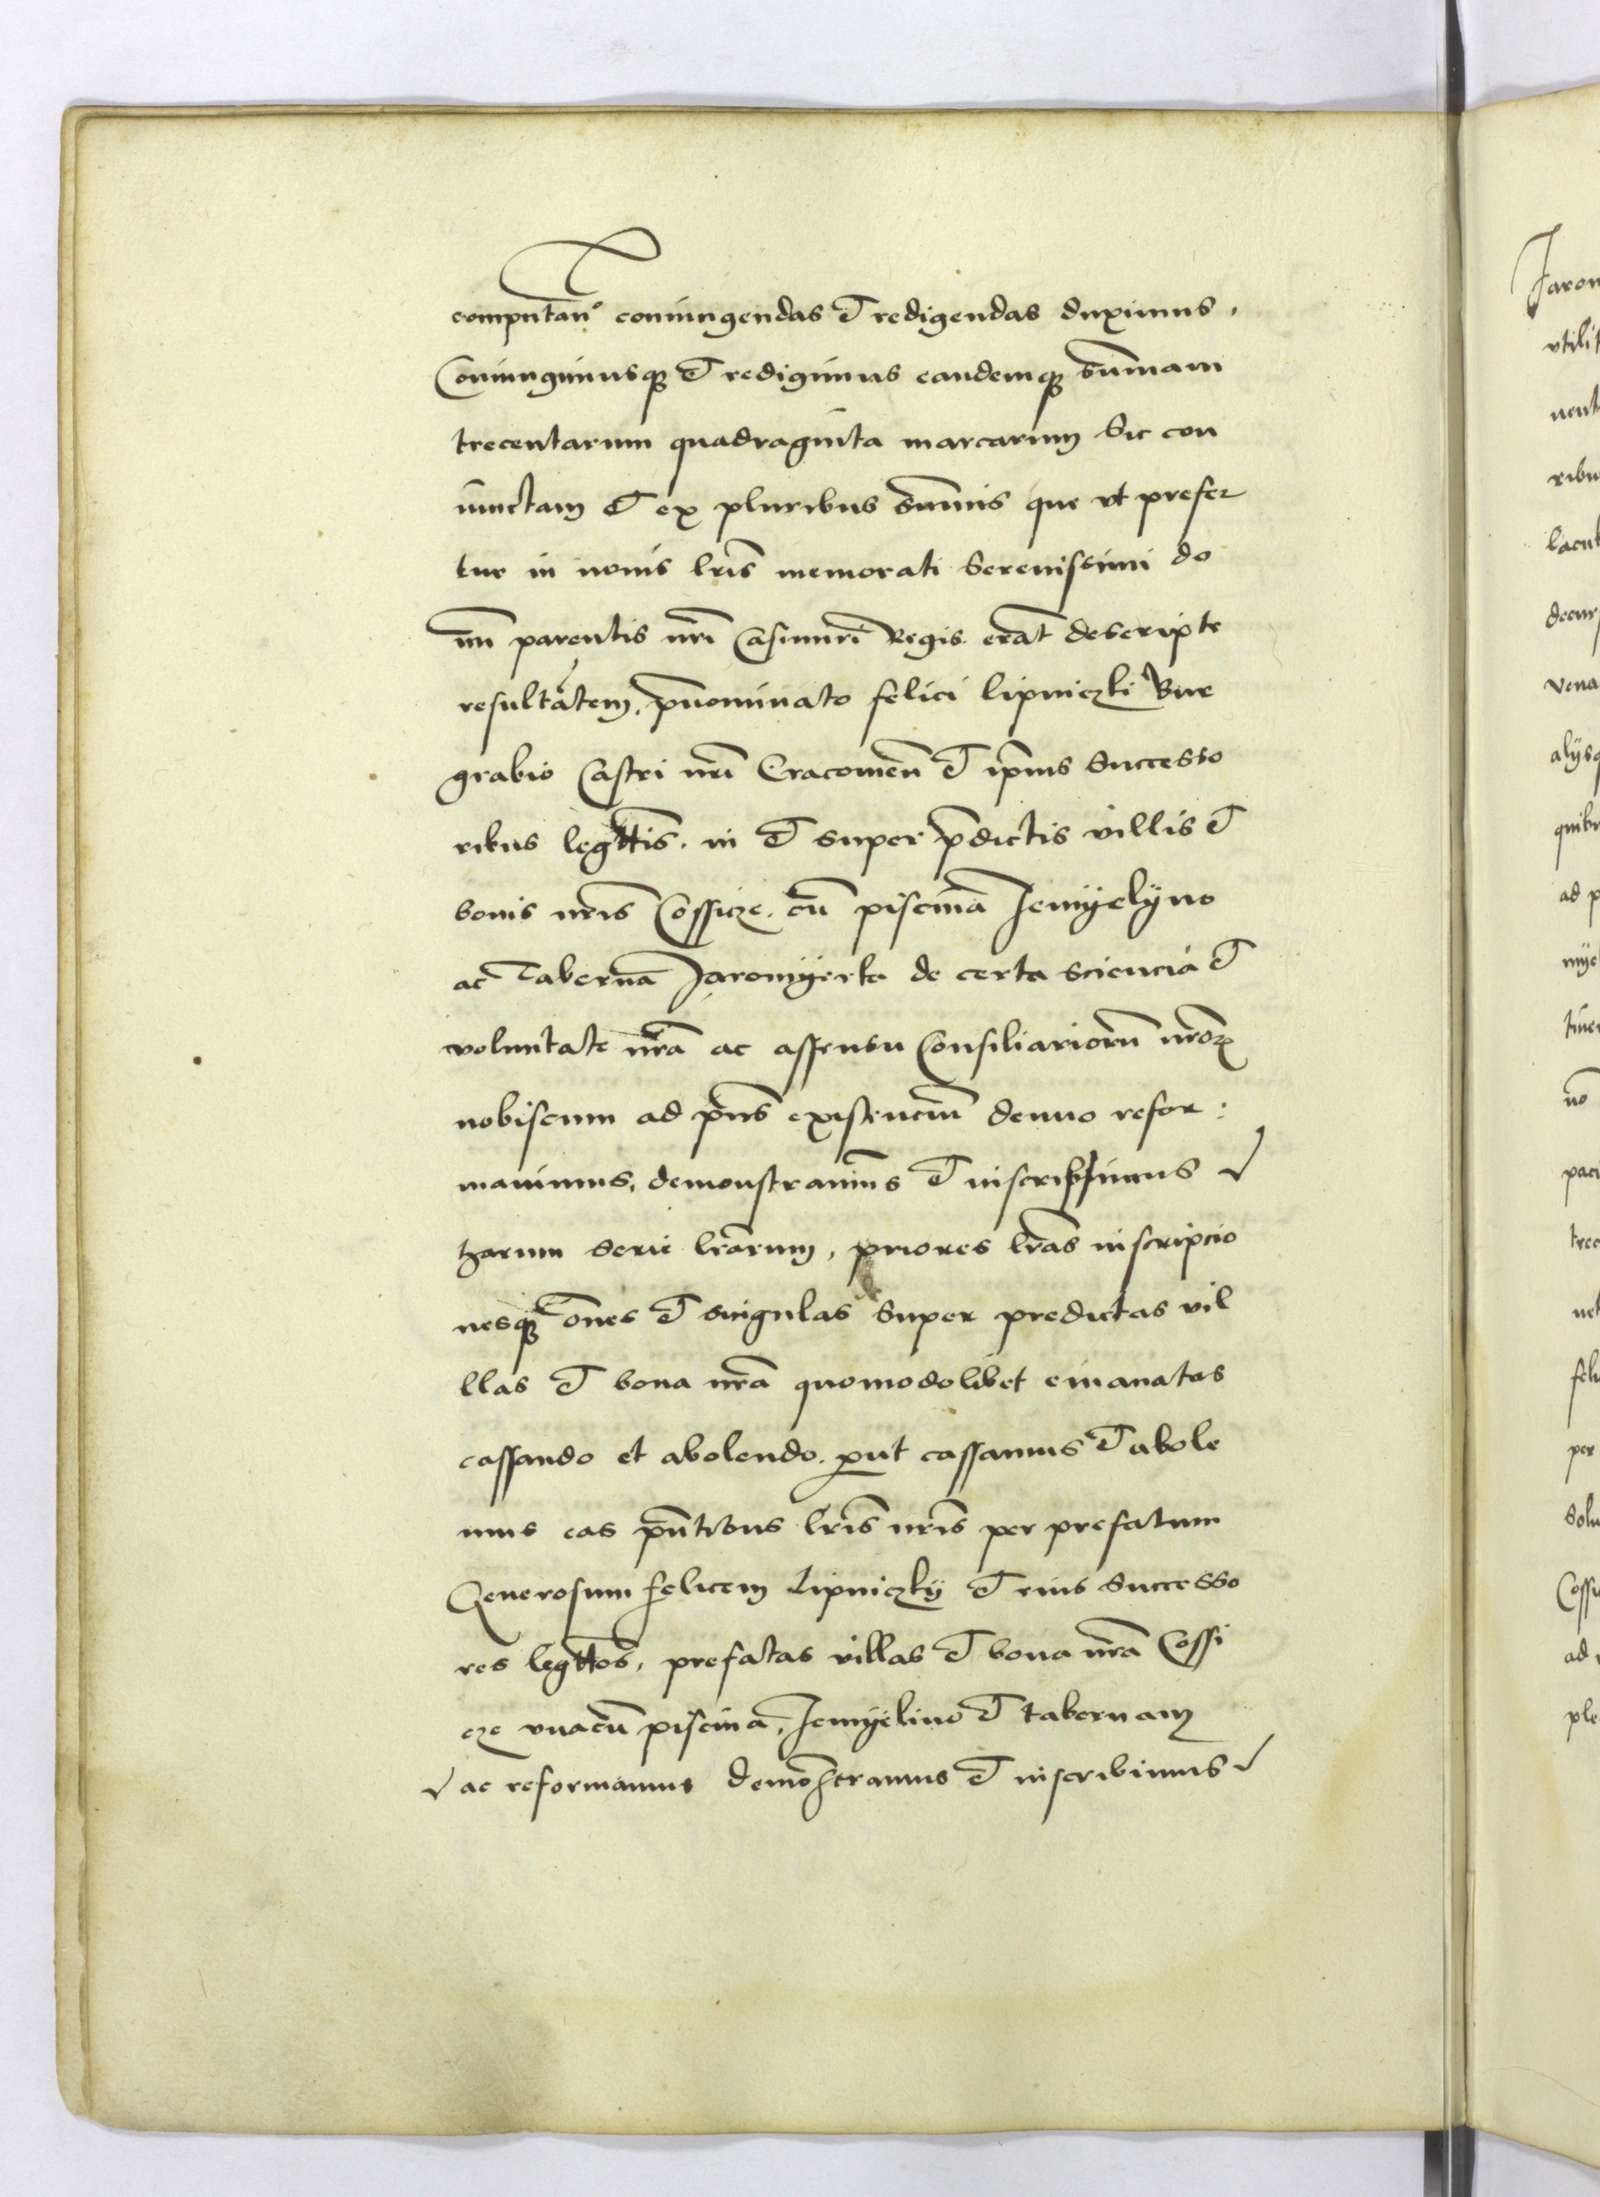 computan° coniungendas et redigendas duximus.
Coniungimusq̨ et redigimus eandemq̨ sum̄am
trecentarum quadraginta marcarum sic con
iunctam et ex pluribus sum̄is que vt prefer
tur in nouis lr̄is memorati Serenissimi do
mi parentis nr̄i Casimiri Regis erāt descripte
resultātem, pn̄ominato felici lipniczki Bur
grabio Castri nr̄i Cracouien̄ et ip̄ius Successo
ribus legttis. in et super p̄dictis villis et
bonis nr̄is Cossicze. cū piscina Jemÿelÿno
ac Taberna Jaromÿerka de certa sciencia et
voluntate nr̄a ac assensu Consiliariorū nr̄or̨
nobiscum ad pn̄s existenciū denuo refor:
mauimus, demonstrauimꝰ et inscripsimus √
harum serie lr̄arum, priores lr̄as inscripcio
nesq̨ om̄es et singulas super predictas vil
llas et bona nr̄a quomodolibet emanatas
cassando et abolendo. ꝓut cassamus et abole
mus eas pn̄tibus lr̄is nr̄is per prefatum
Generosum felicem Lipniczkÿ et eius Successo
res legttos, prefatas villas et bona nr̄a Cossi
cze vnacū piscina, Jemÿelino et tabernam
√ ac reformamus demōstramus et inscribimus √
Jarom
vtilit
uent
ribu
lacu
decur
vena
alÿsq
quibu
ad p
mÿe
tine
no
paci
trec
uel
feli
per
solu
Cossi
ad
ple